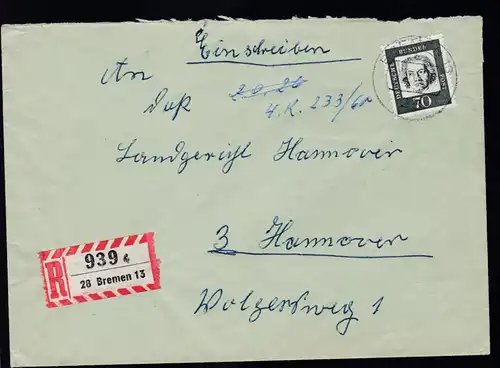 Einschreiben
An
das
20, 26
4. K. 233/60
Landgericht Hannover
3 Hannover
Volgersweg 1
R
939
28 Bremen 13
DEUTSCHE
BUNDESPOST
70
13